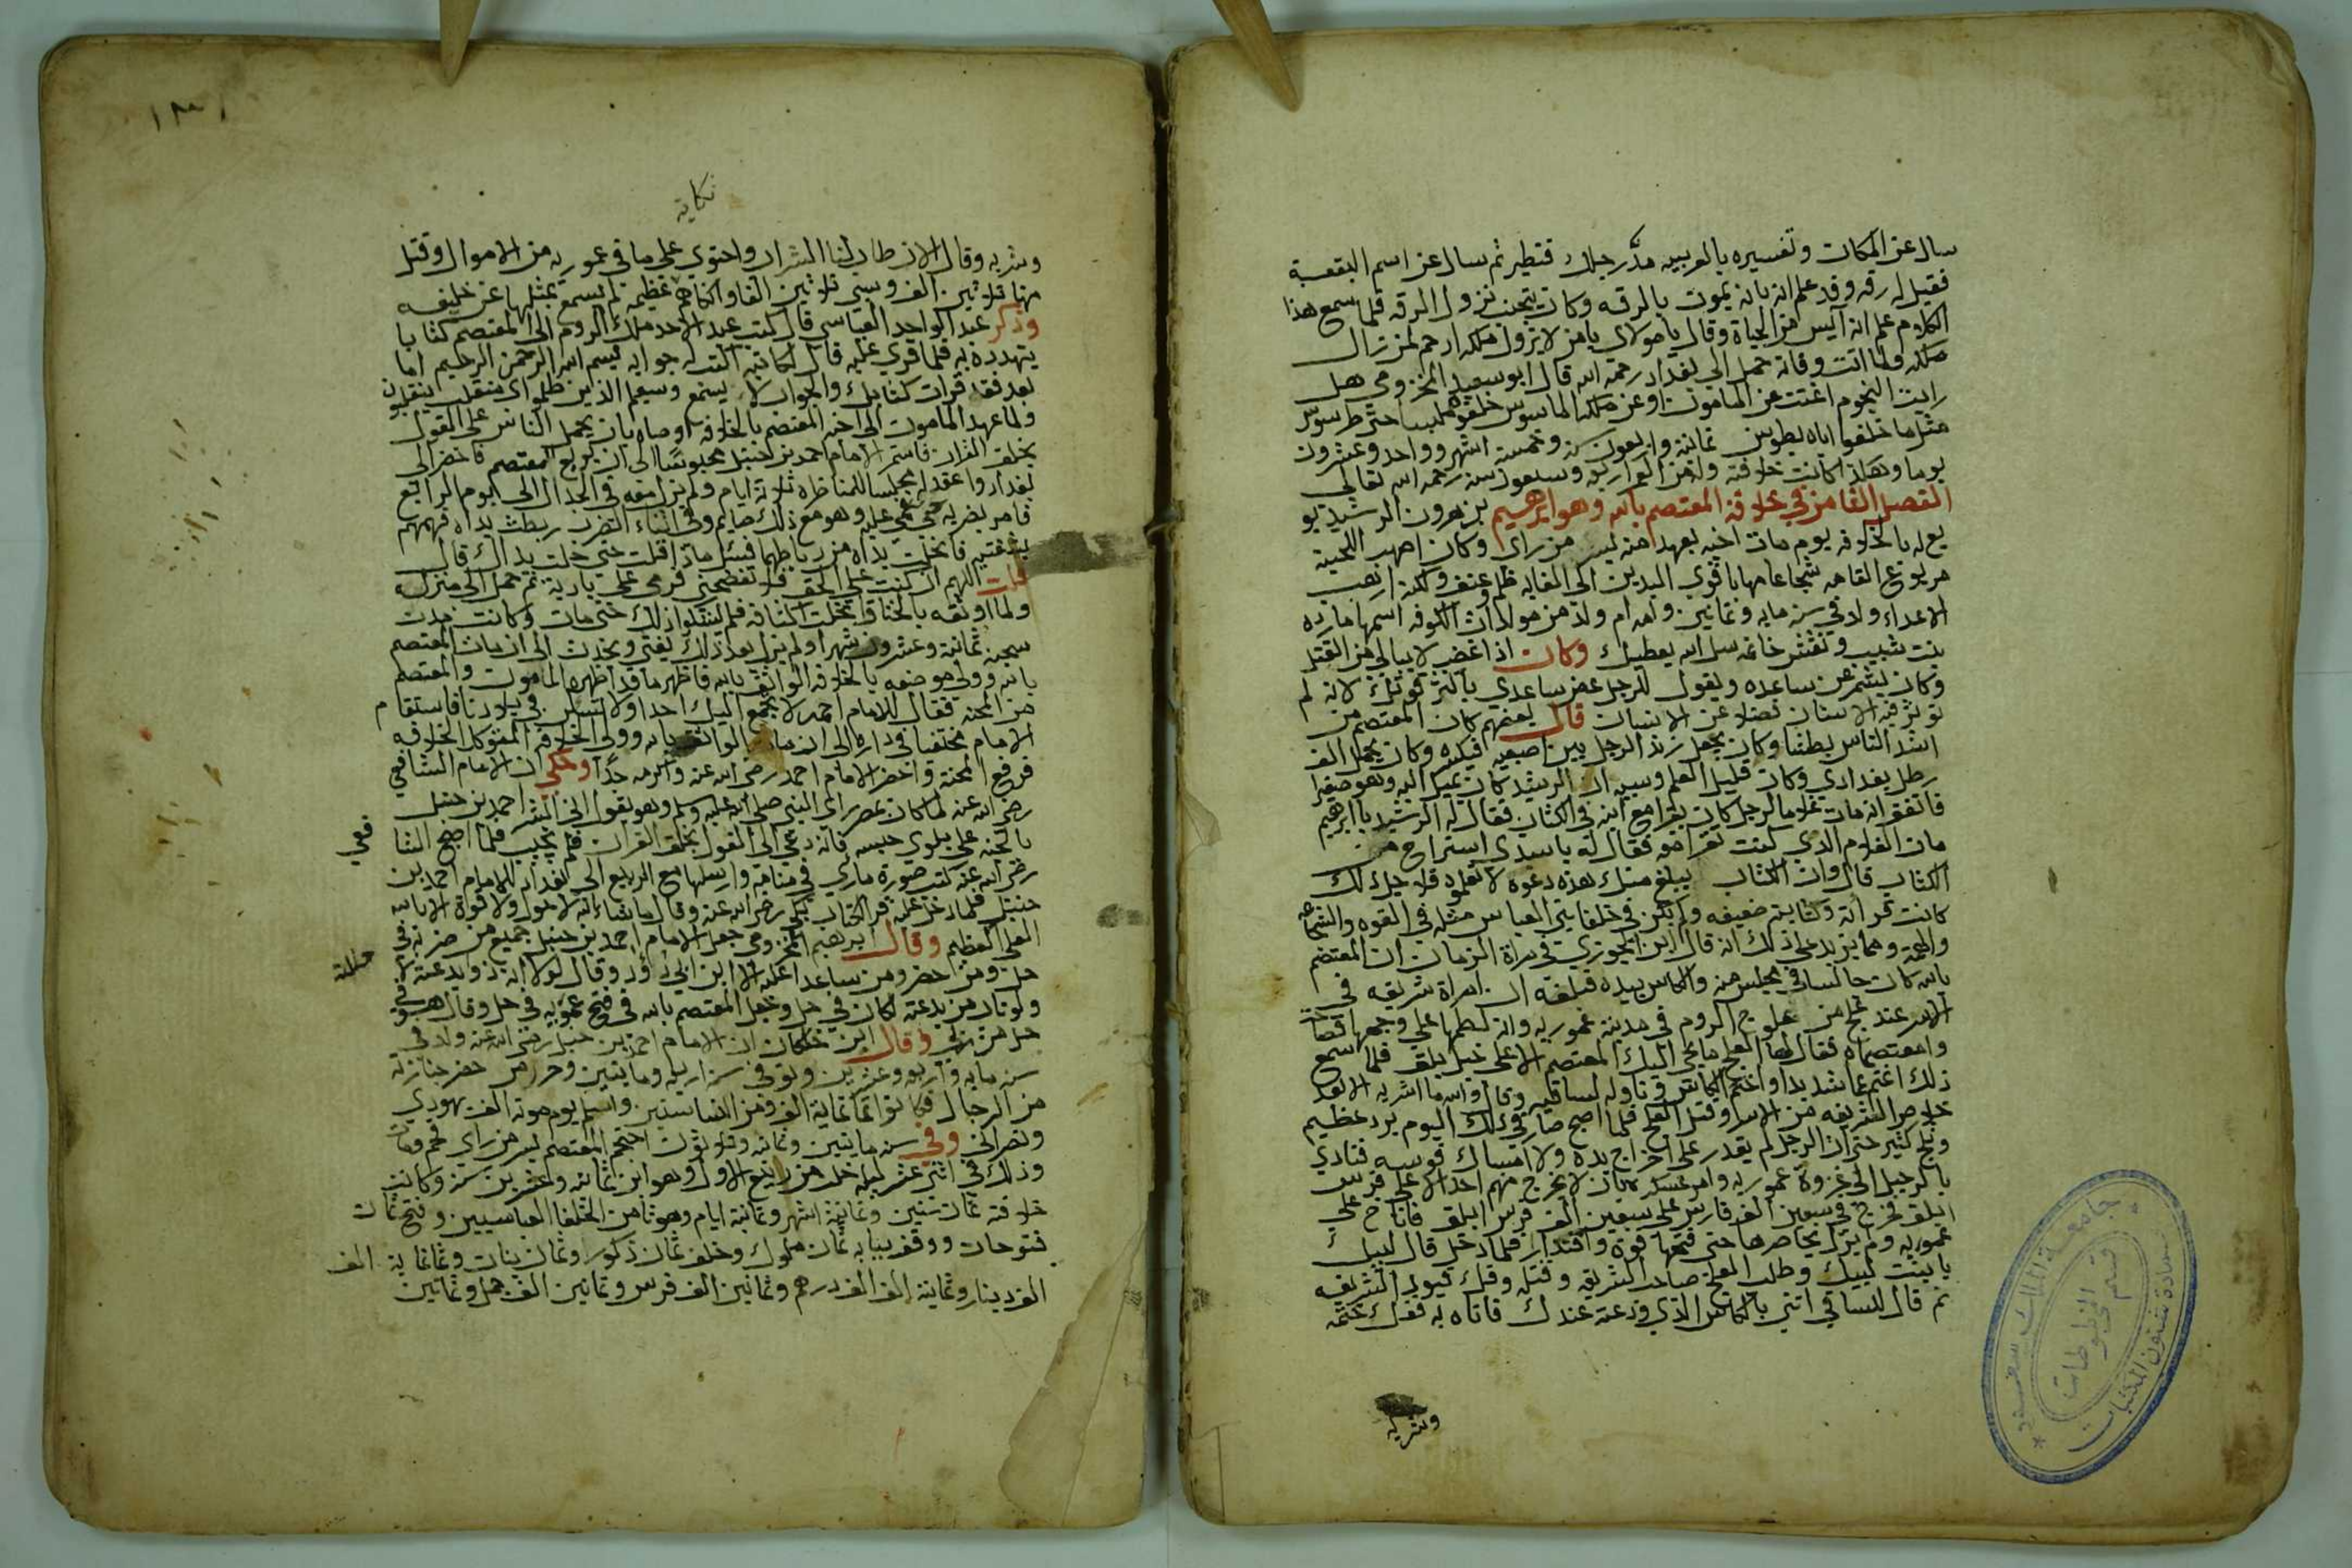 سال عن المكان وتفسيره بالعربيه مدّ رجلك فتطير ثم سال عن اسم البقعة
فقيل له رقه وقد علم انه بانه يموت بالرقه وكان يتجنب نزول الرقه فلما سمع هذا
الكلام علم انه آيس من الحياة وقال يا مولاي يا من لا يزول ملكه ارحم لمن زال
ملكه ولما اتت وفاته حمل الى بغداد رحمه الله قال ابو سعيد المخزومي هل
رايت النجوم اغنت عن المامون او عن ملكه الماسوس خلفوه حتى طرسوس
مثل ما خلفوا اباه بطوس ثمانية واربعون سنه وخمسة اشهر وواحد وعشرون
يوما وهكذا كانت خلافته وله من وسبعون سنه رحمه الله تعالى
الفصل الثامن في خلافة المعتصم بالله وهو ابراهيم بن هرون الرشيد بو
يع له بالخلافه يوم مات اخيه بعهد منه من راى وكان اصهب اللحية
مربوع القامه شجاعا مهابا قوي اليدين الى الغايه
الاعداء ولد في سنه مايه وثمانين وامه ام ولد من مولدات الكوفه اسمها مارده
بنت شبيب ونقش خاتمه سل الله يعطيك وكان اذا غضب لا يبالي من القتل
وكان يشمر عن ساعده ويقول للرجل عض ساعدي باكثر قوتك لانه لم
توثر فيه الاسنان فضلا عن الانسان قال بعضهم كان المعتصم من
اشد الناس بطشا وكان يجعل زند الرجل بين اصبعيه فيكسره وكان يحمل الف
رطل بغدادي وكان قليل العلم وسببه ان الرشيد كان يميل اليه وهو صغير
فاتفق انه مات غلاما لرجل كان يقرا مع ابنه في الكتاب فقال له الرشيد يا ابرهيم
مات الغلام الذي كنت تقرا معه فقال له يا سيدي استراح من
الكتاب قال وان الكتاب يبلغ منك هذه دعوه لا تعلموه فلاجل ذلك
كانت قراته وكتابته ضعيفه ولم يكن في خلفا بني العباس مثله في القوه والشجاعه
والهمة ومما يزيد على ذلك انه قال ابن الجوزي في مراة الزمان ان المعتصم
بالله كان جالسا في مجلس منه والكاس بيده فبلغه ان امراة شريفه في
الاسر عند علج من علوج الروم في مدينة عموريه وانه لطمها على وجهها فصاحت
وامعتصماه فقال لها العلج ما يجي اليك المعتصم الا على خيل بلق فلما سمع
ذلك اغتم غما شديدا وختم الكاس وناوله لساقيه وقال والله ما اشربه الا بعد
خلاص الشريفه من الاسر وقتل العلج فلما اصبح صار في ذلك اليوم برد عظيم
وثلج كثير حتى ان الرجل لم يقدر على اخراج يده ولا امساك قوسه فنادي
بالرحيل الى غزوة عموريه وامر عسكره بان لا يخرج منهم احدا الا على فرس
ابلق فخرج في سبعين الف فارس على سبعين الف فرس ابلق فاناخ على
عموريه ولم يزل يحاصرها حتى فتحها قوة واقتدارا فلما دخل قال لبيك
يا بنت لبيك وطلب العلج صاحب الشريفه وقتله وفك قيود الشريفه
ثم قال للساقي ائتني بالكاس الذي ودعته عندك فاتاه به ففك ختمه
وشربه
جامعة الملك سعود
قسم المخطوطات
عمادة شئون المكتبات
١٣١
نكاية
وشربه وقال الان طاب لنا الشراب واحتوى على ما في عموريه من الاموال وقتل
منها ثلاثين الف وسبي ثلاثين الفا عظيمه لم يسمع بمثلها عن خليفه
وذكر عبد الواحد العباسي قال كتب عبد الاحد ملك الروم الى المعتصم كتابا
يتهدده به فلما قري عليه قال لكاتبه اكتب له جوابه بسم الله الرحمن الرحيم اما
بعد فقد قرات كتابك والجواب لا يسمع وسيعلم الذين ظلموا اى منقلب ينقلبون
ولما عهد المامون الى اخيه المعتصم بالخلافه اوصاه بان يحمل الناس على القول
بخلق القران فاستمر الامام احمد بن حنبل محبوسا الى ان بويع المعتصم فاحضر الى
بغداد وعقد له مجلسا للمناظره ثلاثة ايام ولم يزل معه في الجدال الى اليوم الرابع
فامر بضربه حتى غمي عليه وهو مع ذلك صايم وفي اثناء الضرب ربطت يداه فهمهم
بشفتيه فانحلت يداه من رباطهما فسئل ماذا قلت حتى حلت يداك قال
قلت اللهم ان كنت على الحق فلا تفضحني فرمي على بارية ثم حمل الى منزله
ولما اوثقه بالخناق انخلت اكتافه فلم يشكوا ذلك حتى مات وكانت مدت
سجنه ثمانية وعشرون شهرا ولم يزل بعد ذلك يفتي ويحدث الى ان مات المعتصم
بالله وولي موضعه بالخلافه الواثق بالله فاظهر ما قد اظهره المامون والمعتصم
من المحنه فقال للامام احمد لا تجمع اليك احدا ولا تسكن في بلادنا فاستقام
الامام مختفيا في داره الى ان مات الواثق بالله وولي الخلافه المتوكل الخلافه
فرفع المحنة واحضر الامام احمد رضي الله عنه واكرمه جدا وحكي ان الامام الشافعي
رضي الله عنه لما كان بمصر راى النبي صلى الله عليه وسلم وهو يقول الى ابشر احمد بن حنبل
بالجنه على بلوي حبسه فانه دعي الى القول بخلق القران فلم يجيب فلما اصبح الشا
فعي
رضي الله عنه كتب صورة ما راي في منامه وارسلها مع الربيع الى بغداد للامام احمد بن
حنبل فلما دخل عليه قرا الكتاب بكى رضي الله عنه وقال ما شاء الله لا حول ولا قوة الا بالله
العلي العظيم وقال ابرهيم المخزومي جعل الامام احمد بن حنبل جميع من ضربه في
حل ومن حضر ومن ساعد عليه الا ابن ابي دؤد وقال لولا انه ذو بدعة لا
ولو تاب من بدعته لكان في حل وجعل المعتصم بالله في فتح عموريه في حل وقال هو في
حل من ضربي وقال ابن خلكان ان الامام احمد بن حنبل رضي الله عنه ولد في
سنه مايه واربعه وعشرين وتوفي سنه اربعه ومايتين وحرز من حضر جنازته
من الرجال فكانوا ثمانماية الف ومن النسا ستين واسلم يوم موته الف يهودي
ونصراني وفي سنه مايتين وثمانه وثلاثون احتجم المعتصم بسر من راي فحم ومات
وذلك في اثني عشر ليله خلت من ربيع الاول وهو ابن ثمانيه وعشرين سنه وكانت
خلافته ثمان سنين وثمانية اشهر وثمانية ايام وهو ثامن الخلفا العباسيين وفتح ثمان
فتوحات ووقف ببابه ثمان ملوك وخلف ثمان ذكور وثمان بنات وثمانماية الف
الف دينار وثمانية الف الف درهم وثمانين الف فرس وثمانين الف جمل وثمانين